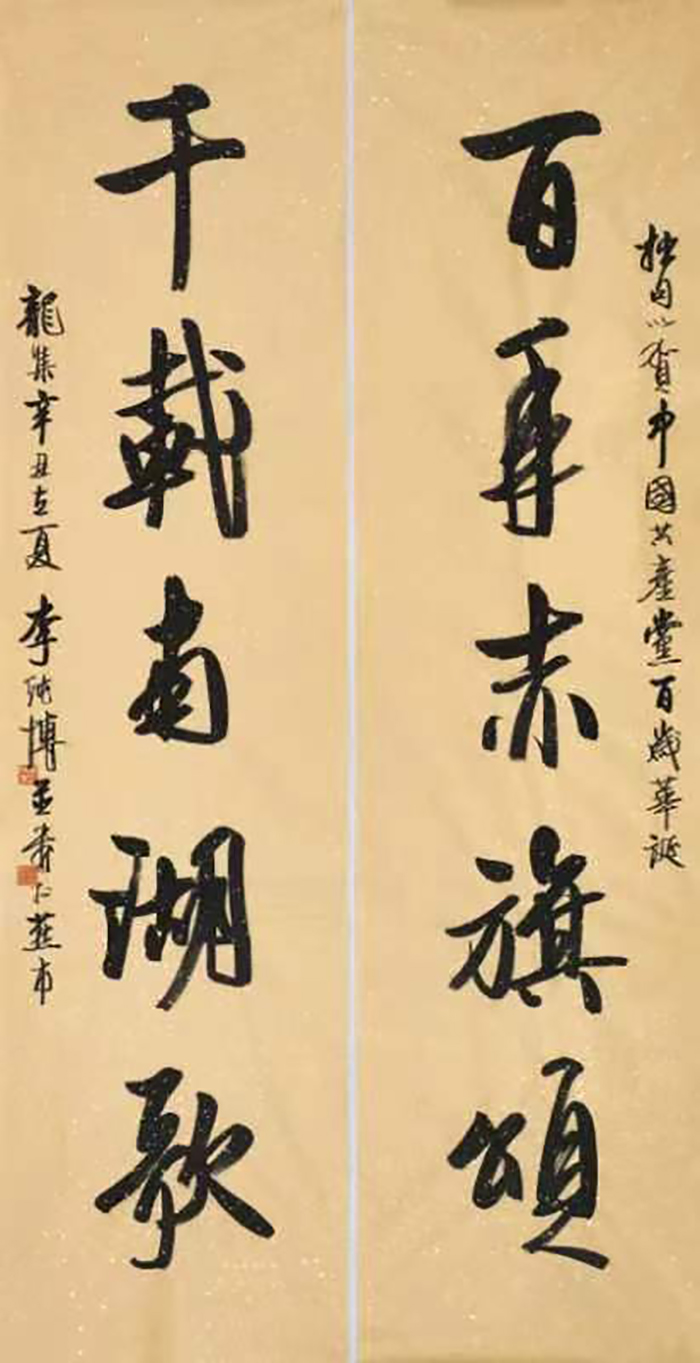 拙句以賀中國共產黨百歲華誕
百年赤旗頌
千載南湖歌
龍集辛丑立夏 李博並書於蕪市